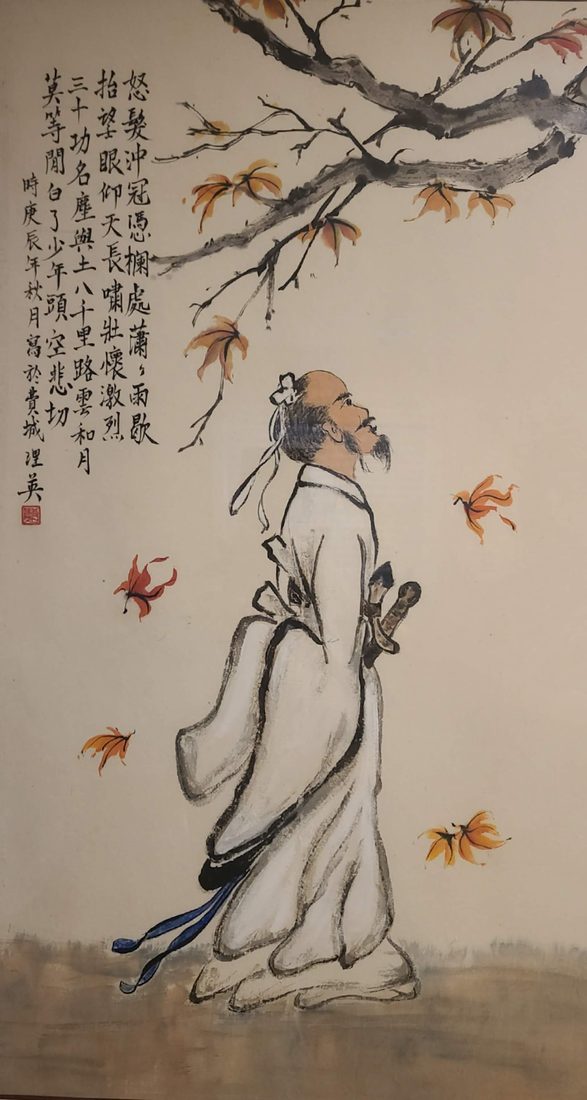 怒髮沖冠憑欄處瀟々雨歇
抬望眼仰天長嘯壯懷激烈
三十功名塵與土八千里路雲和月
莫等閒白了少年頭空悲切
時庚辰年秋月寫於費城 理英